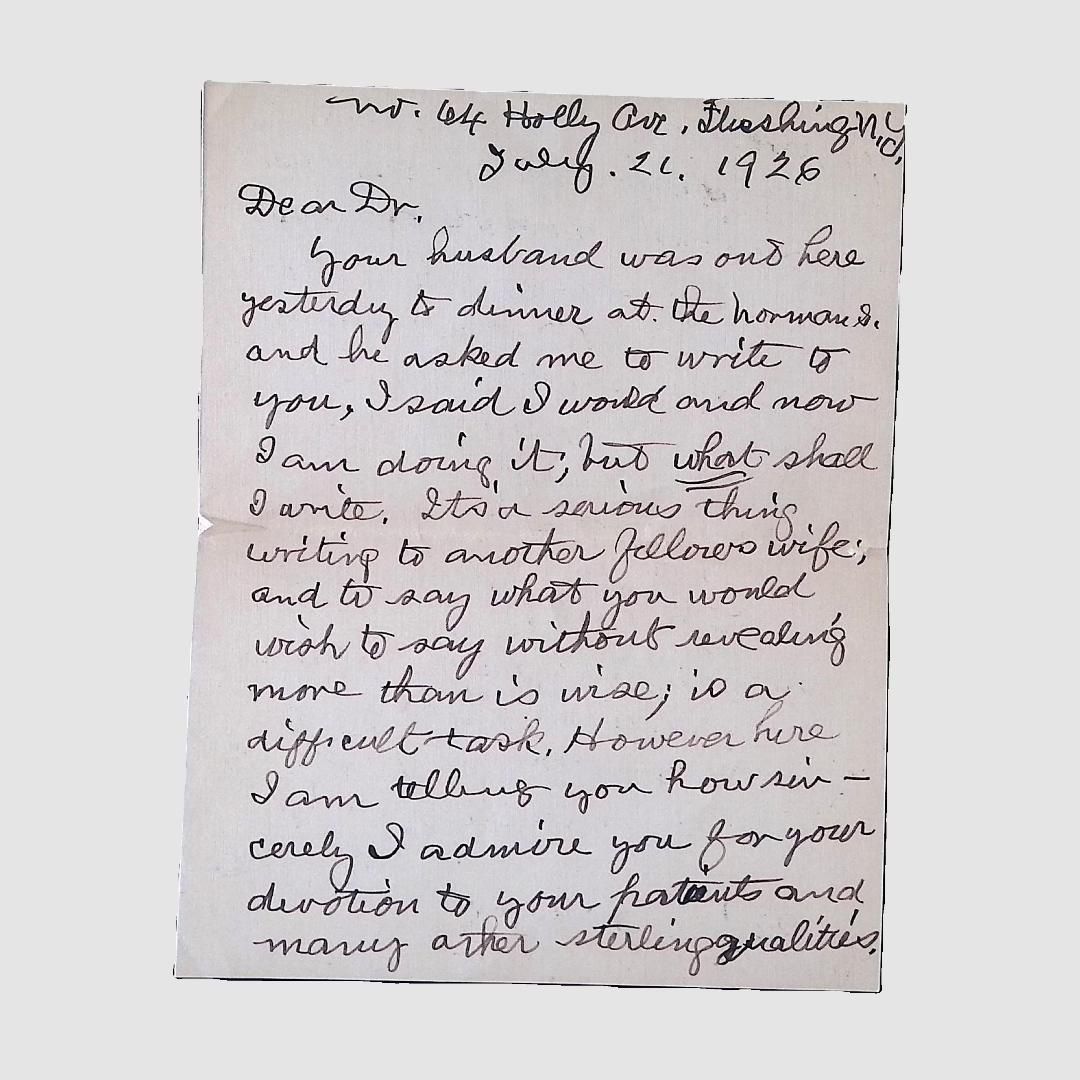 No. 64 Holly Ave, Flushing N.Y.
July. 21. 1926
Dear Dr.
Your husband was out here
yesterdy to dinner at. the Normans.
and he asked me to write to
you, I said I would and now
I am doing it; but what shall
I write. Its a serious thing
writing to another fellows wife;
and to say what you would
wish to say without revealing
more than is wise; is a
difficult task. However here
I am telling you how sin-
cerely I admire you for your
devotion to your patients and
many other sterling qualities.